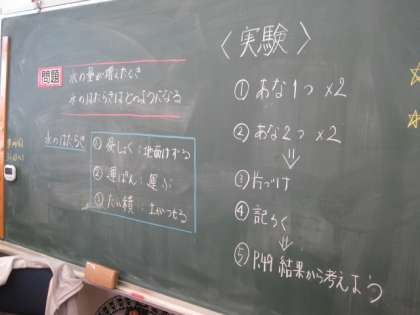 問題
水の量が増えたとき
水のはたらきはどのようになる
水のはたらき
①侵しょく:地面けずる
②運ぱん:運ぶ
③たい積:土がつもる
〈実験〉
①あな1つ×2
②あな2つ×2
↓
③片づけ
④記ろく
↓
⑤P.49 結果から考えよう